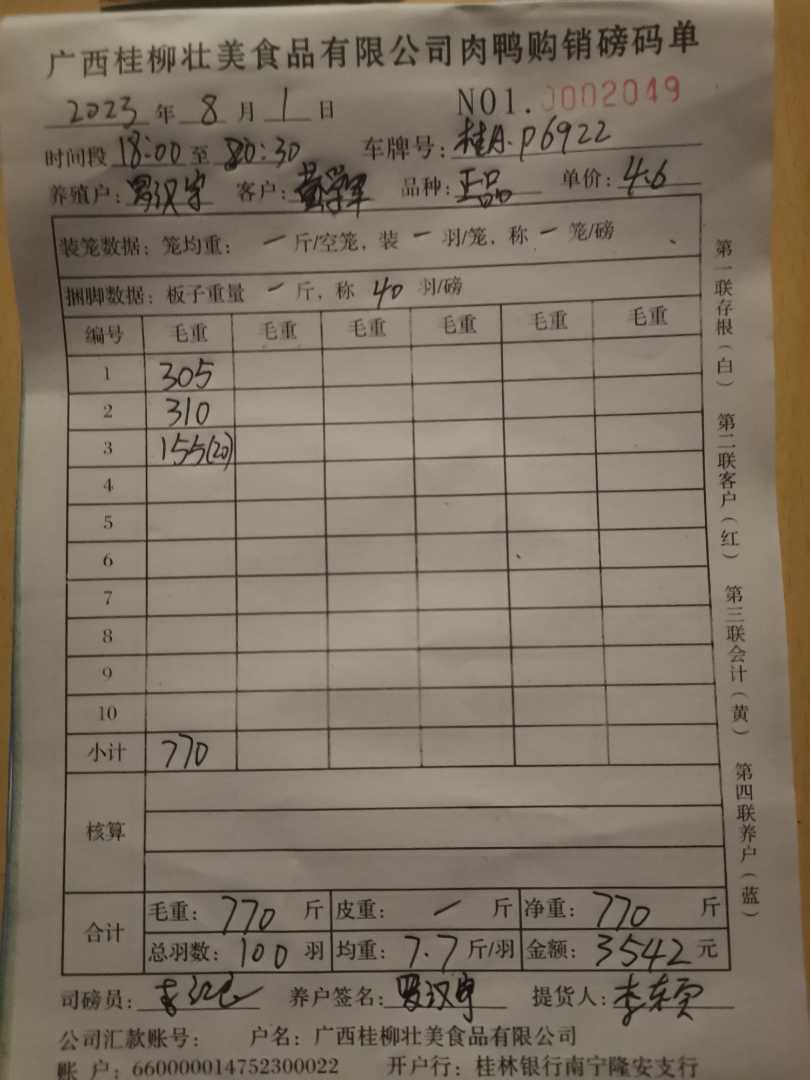 广西桂柳壮美食品有限公司肉鸭购销磅码单
2023 年 8 月 1 日 NO1. 0002049
时间段 18:00 至 20:30 车牌号: 桂A.P6922
养殖户: 罗汉宇 客户: 黄学军 品种: 正品 单价: 4.6
装笼数据: 笼均重: 一 斤/空笼, 装 一 羽/笼, 称 一 笼/磅
捆脚数据: 板子重量 一 斤, 称 40 羽/磅
编号 毛重 毛重 毛重 毛重 毛重 毛重
1 305
2 310
3 155(20)
4
5
6
7
8
9
10
小计 770
核算
合计 毛重: 770 斤 皮重: 一 斤 净重: 770 斤
总羽数: 100 羽 均重: 7.7 斤/羽 金额: 3542 元
司磅员: 养户签名: 罗汉宇 提货人: 李
公司汇款账号: 户名: 广西桂柳壮美食品有限公司
账 户: 660000014752300022 开户行: 桂林银行南宁隆安支行
第一联存根(白) 第二联客户(红) 第三联会计(黄) 第四联养户(蓝)